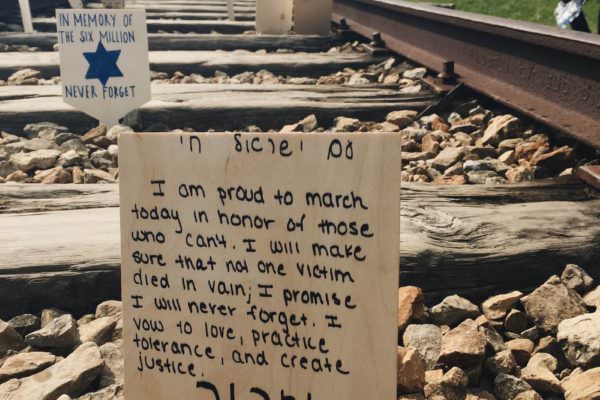 IN MEMORY OF
THE SIX MILLION
NEVER FORGET
עם ישראל חי
I am proud to march
today in honor of those
who can't. I will make
sure that not one victim
died in vain; I promise
I will never forget. I
vow to love, practice
tolerance, and create
justice.